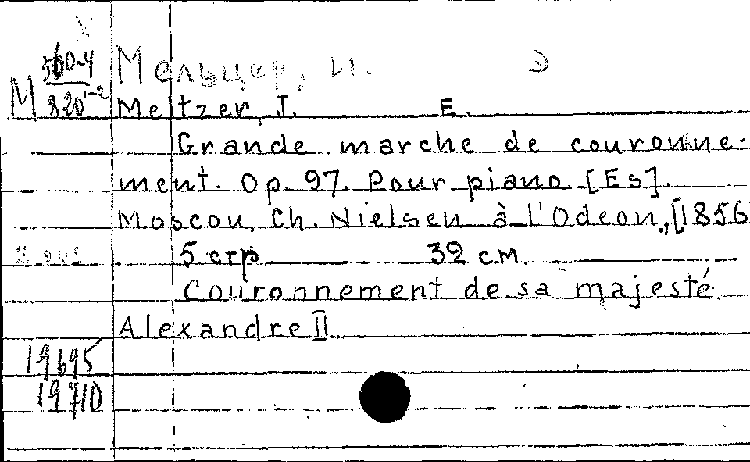 М 560-4 Мельцер, И. Э
820 1-2 Meltzer, J. E.
Grande marche de couronne-
ment. Op. 97. Pour piano [Es].
Moscou, Ch. Nielsen à l'Odeon, [1856
5 стр 32 см.
Couronnement de sa majesté
Alexandre II
19695
19710